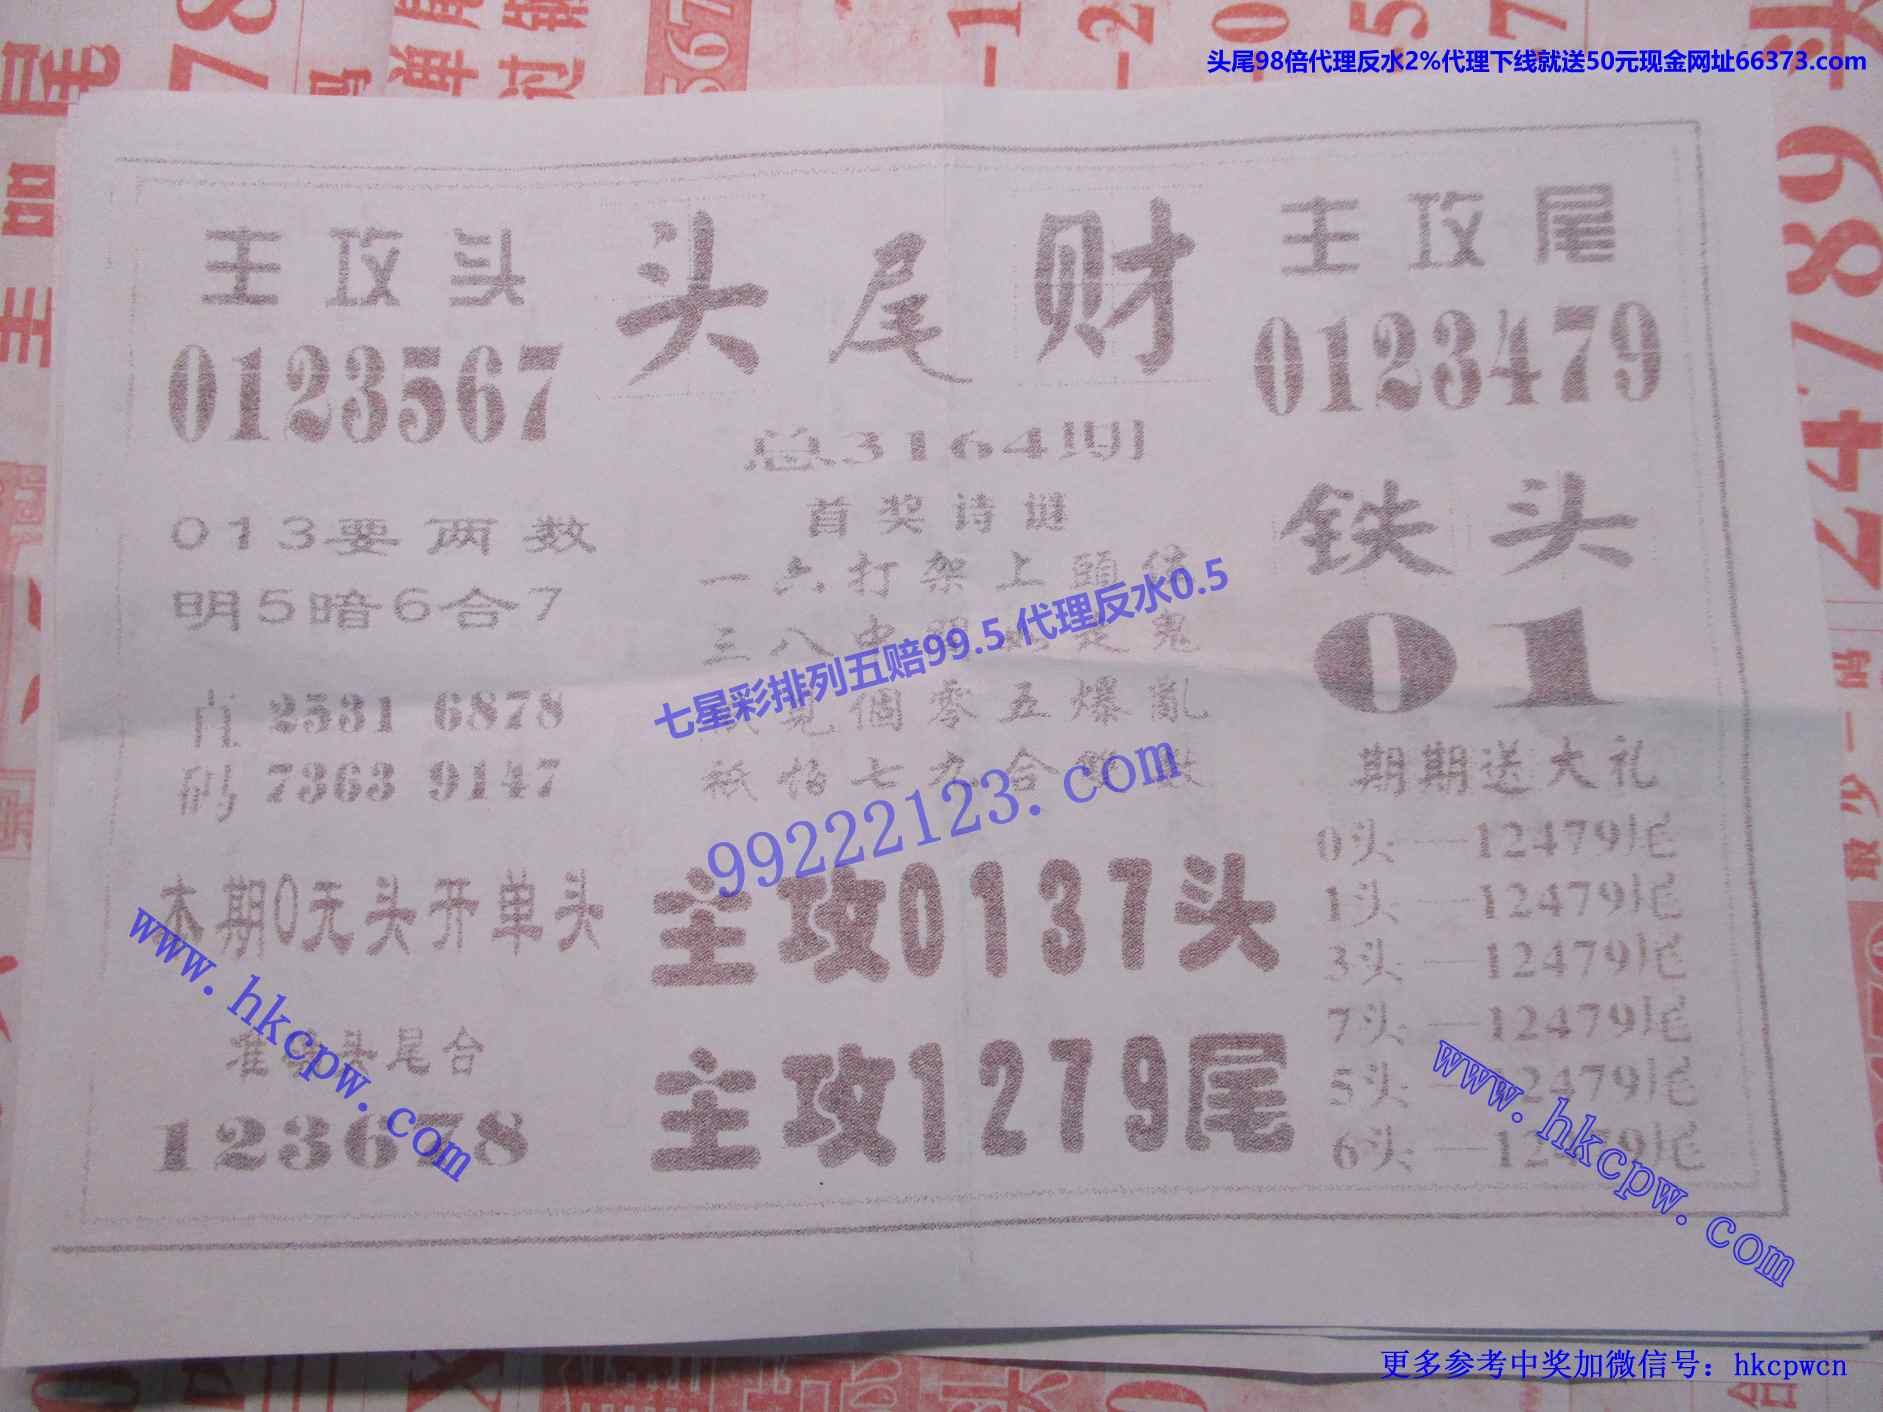 头尾98倍代理反水2%代理下线就送50元现金网址66373.com
头尾财
总3164期
主攻头
0123567
013要两数
明5暗6合7
肖码
2531 6878
7363 9147
本期0无头开单头
头尾合
123678
首奖诗谜
一六打架上頭
三八中
見個零五爆亂
祇恰七九合
七星彩排列五赔99.5 代理反水0.5
99222123.com
主攻0137头
主攻1279尾
主攻尾
0123479
铁头
01
期期送大礼
0头—12479尾
1头—12479尾
3头—12479尾
7头—12479尾
5头—12479尾
6头—12479尾
www.hkcpw.com
www.hkcpw.com
更多参考中奖加微信号：hkcpwcn